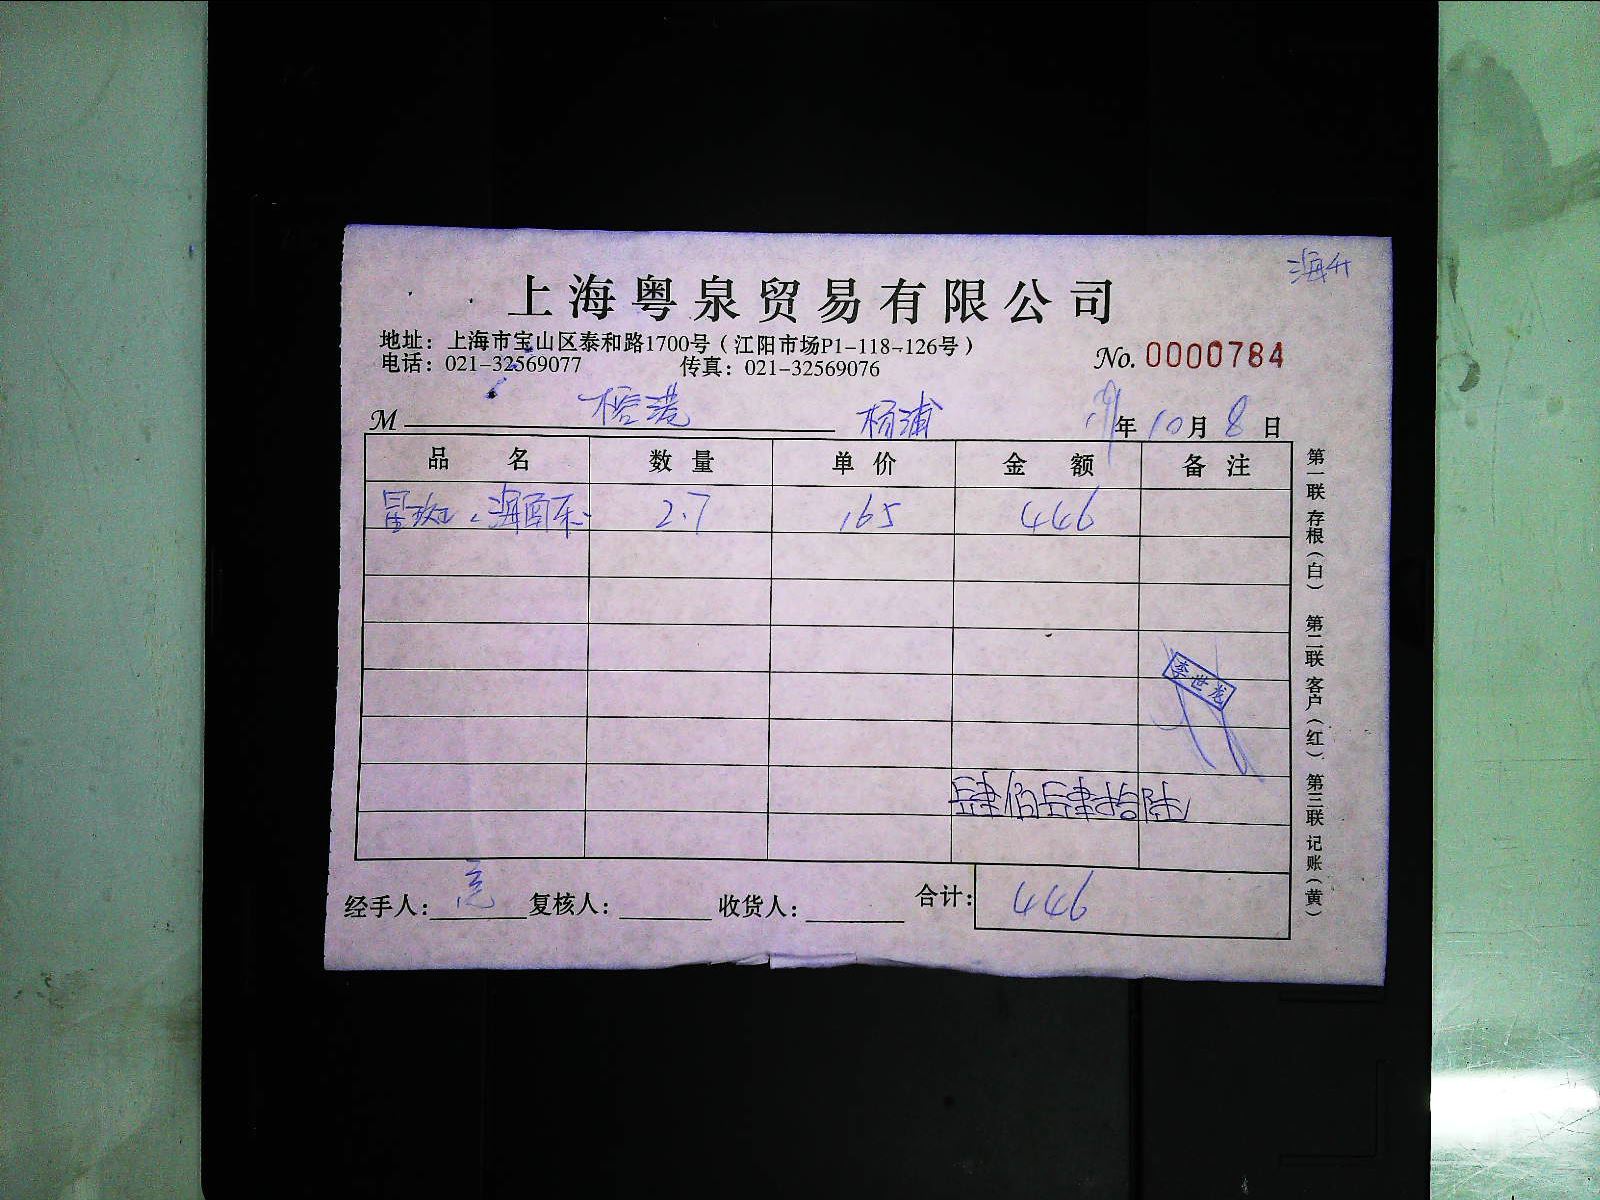 上海粤泉贸易有限公司
地址：上海市宝山区泰和路1700号（江阳市场P1-118-126号）
电话：021-32569077 传真：021-32569076
No. 0000784
M 榕港 杨浦 年 10 月 8 日
品 名 数 量 单 价 金 额 备 注
2.7 165 446
李世龙
肆佰肆拾陆
经手人： 复核人： 收货人： 合计： 446
第一联 存根（白） 第二联 客户（红） 第三联 记账（黄）